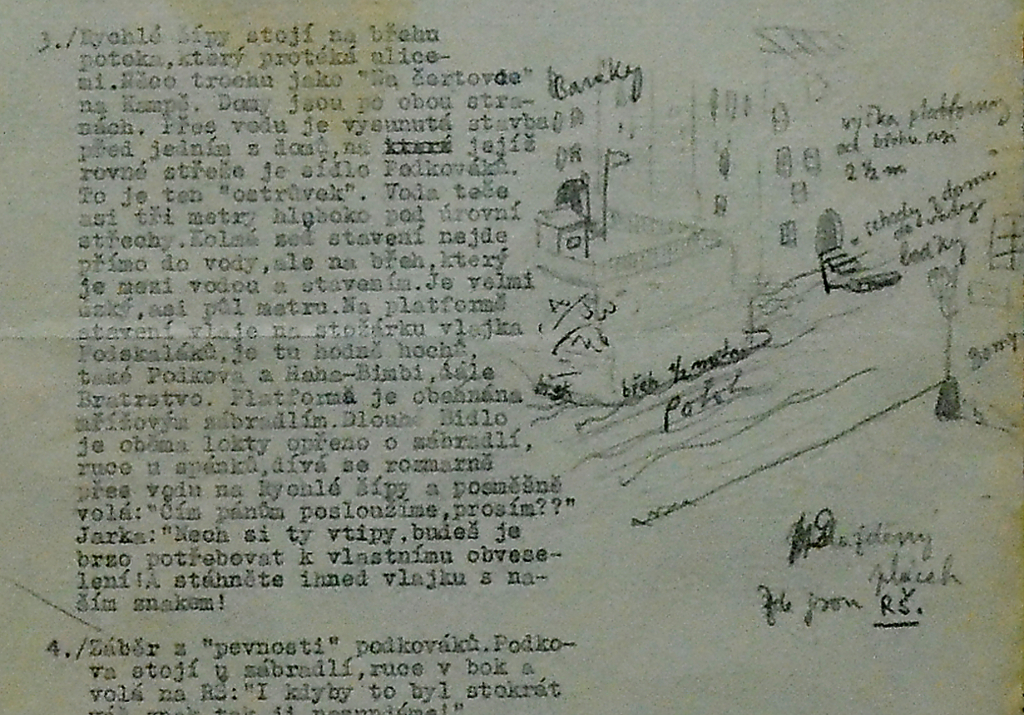 3./Rychlé šípy stojí na břehu
potoka,který protéká ulice-
mi.Něco trochu jako "Na čertovde"
na Kampě. Domy jsou po obou stra-
nách. Přes vodu je vysunutá stavba
před jedním z domů,na které jejíž
rovné střeše je sídlo Podkováků.
To je ten "ostrůvek". Voda teče
asi tři metry hluboko pod úrovní
střechy.Kolmá zeď stavení nejde
přímo do vody,ale na břeh,který
je mezi vodou a stavením.Je velmi
úzký,asi půl metru.Na platformě
stavení vlaje na stožárku vlajka
Podskaláků,je tu hodně hochů,
také Podkova a Haha-Bimbi,dále
Bratrstvo. Platforma je obehnána
mřížovým zábradlím.Dlouhé Bidlo
je oběma lokty opřeno o zábradlí,
ruce u spánků,dívá se rozmarně
přes vodu na Rychlé šípy a posměšně
volá:"Čím pánům posloužíme,prosím??"
Jarka:"Nech si ty vtipy,budeš je
brzo potřebovat k vlastnímu obvese-
lení!A stáhněte ihned vlajku s na-
ším znakem!
4./Záběr z "pevnosti" podkováků.Podko-
va stojí u zábradlí,ruce v bok a
volá na RŠ:"I kdyby to byl stokrát
váš znak,tak ji nesundáme!"
baráky
výška platformy
od břehu asi
2 ½ m
schody z domu
do vody
loďky
domy
břeh
břeh ½ metru
potok
dlážděný
plácek
Zde jsou RŠ.